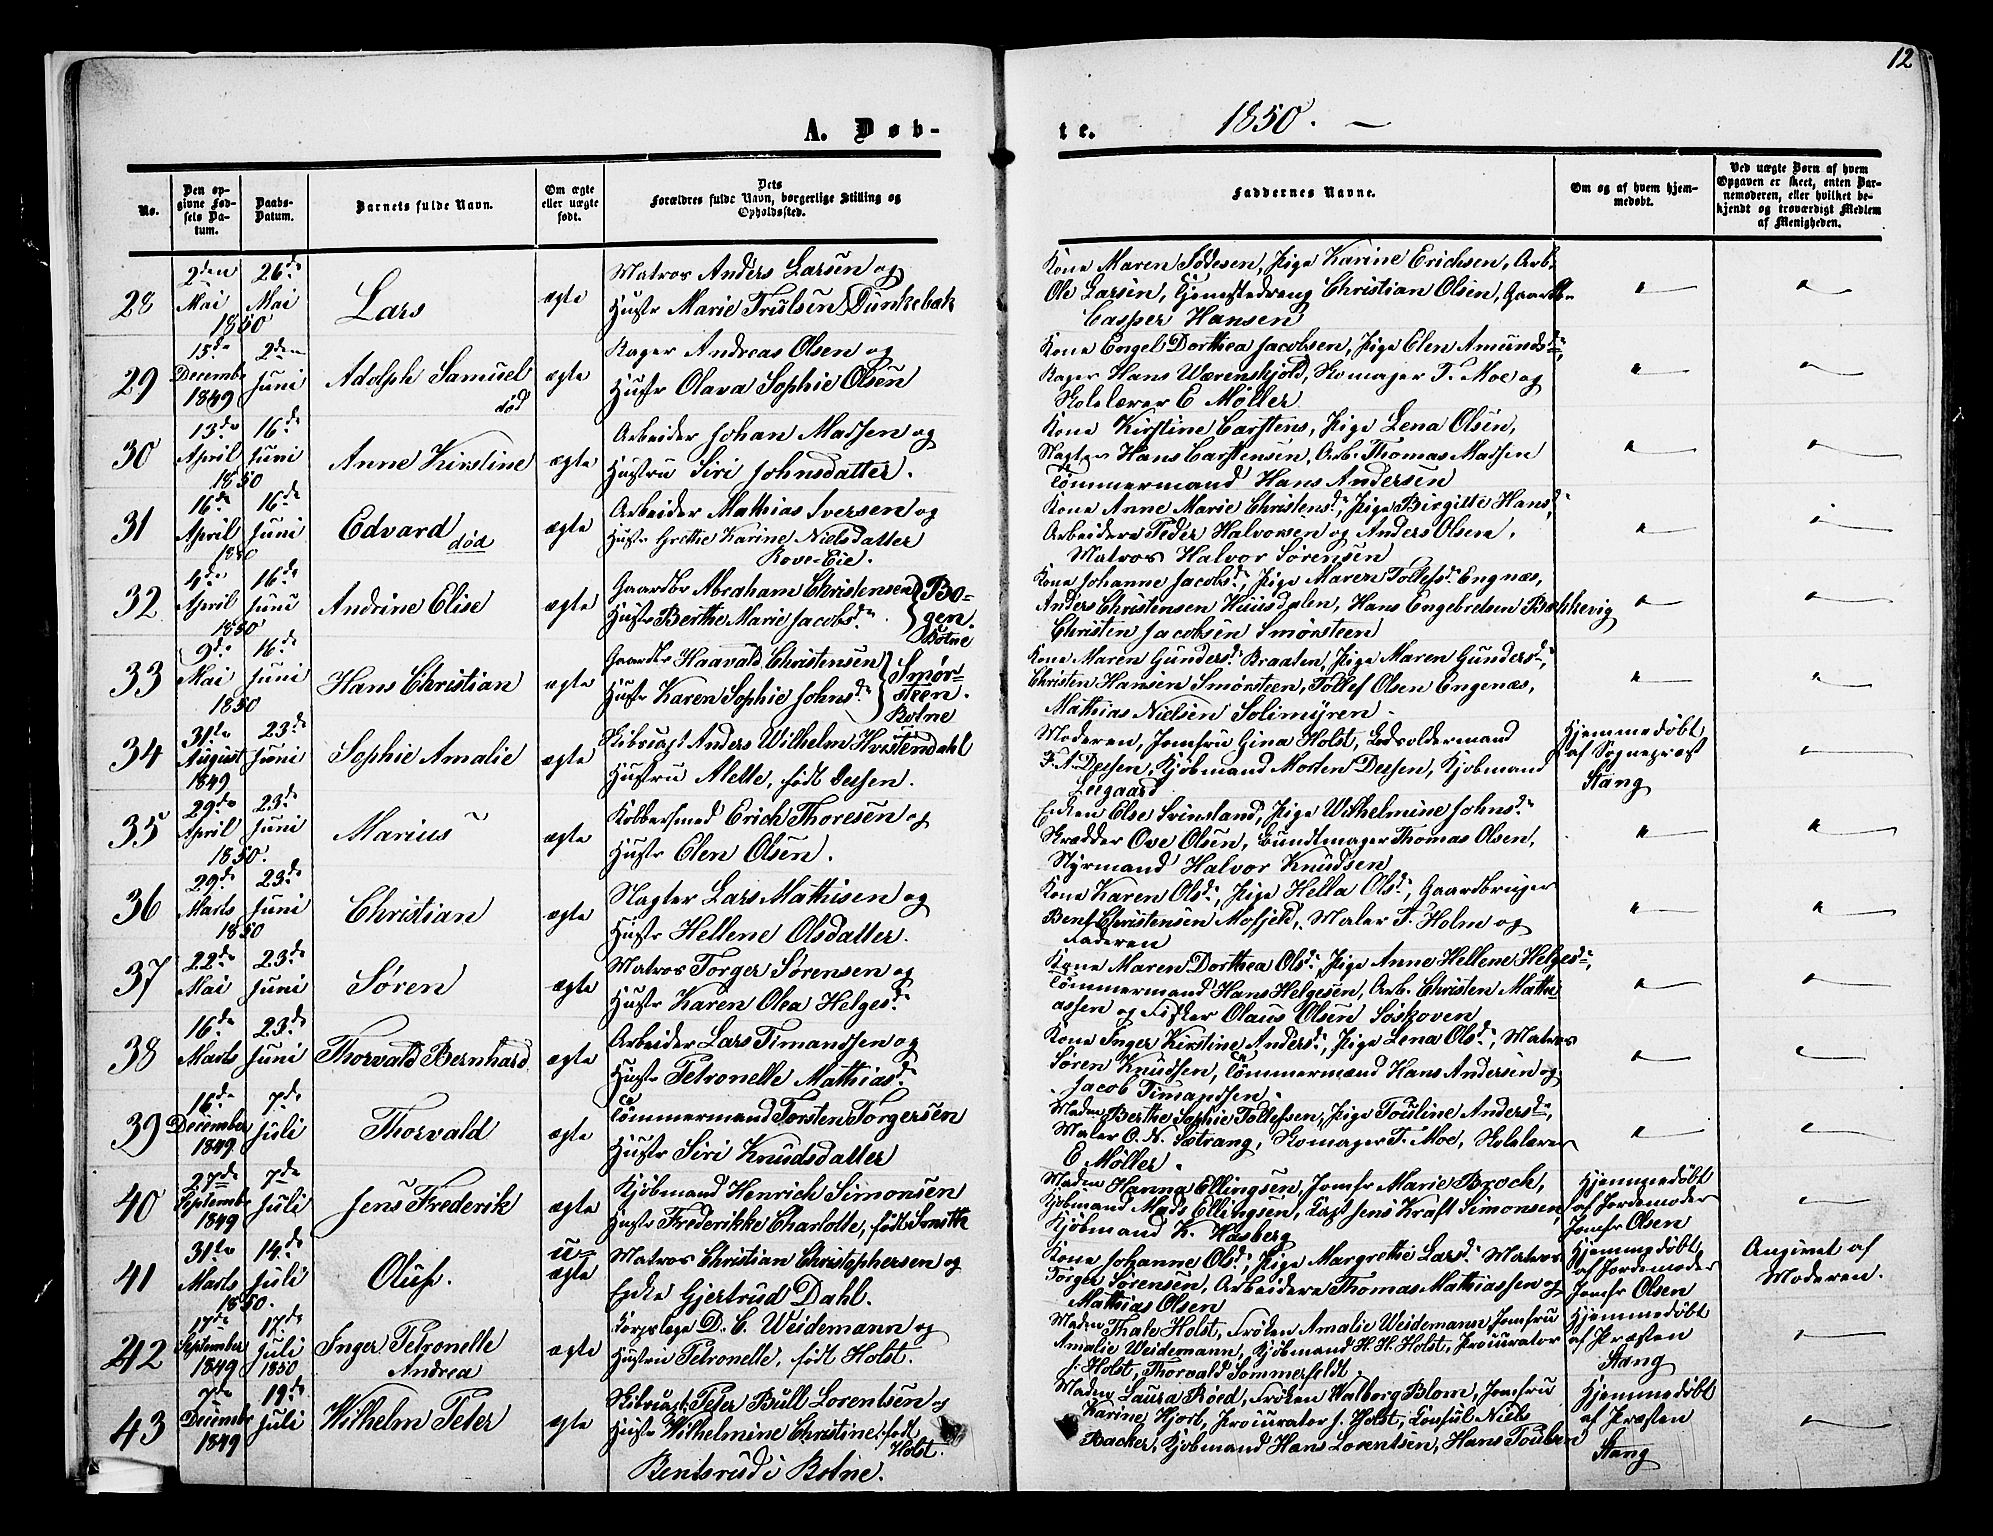 12
A. Døb-
te. 1850. –
No.
Den op-
givne Fød-
sels Da-
tum.
Daabs-
Datum.
Barnets fulde Navn.
Om ægte
eller uægte
født.
Dets
Forældres fulde Navn, borgerlige Stilling og
Opholdssted.
Faddernes Navne.
Om og af hvem hjem-
medøbt.
Ved uægte Børn af hvem
Opgaven er skeet, enten Bar-
nemoderen, eller hvilket be-
kjendt og troværdigt Medlem
af Menigheden.
28
2den
Mai
1850
26de
Mai
Lars
ægte
Matros Anders Larsen og
Hustr Marie Trulsen Dunkebæk
Kone Maren Pige Karine Erichsen, Arb.
Ole Larsen, Christian Olsen,
Casper Hansen
29
15de
Decembr
1849
2den
Juni
Adolph Samuel
død
ægte
Bager Andreas Olsen og
Hustr Olava Sophie Olsen
Kone Engel Dorthea Jacobsen, Pige Elen Amundsd.
Bager Hans Wærenskjold, Skomager T. Moe og
Skolelærer E Møller
30
13de
April
1850
16de
Juni
Anne Kirstine
ægte
Arbeider Johan Madsen og
Hustru Siri Johnsdatter.
Kone Kirstine Carstens, Pige Lena Olsen,
Slagter Hans Carstensen, Arb. Thomas Madsen
Tømmermand Hans Andersen
31
16de
April
1850
16de
Juni
Edvard
død
ægte
Arbeider Mathias Iversen og
Hustr Grethe Karine Nielsdatter
Rove-Eie.
Kone Anne Marie Christensd., Pige Birgitte Hansd.
Arbeidere Peder Halvorsen og Anders Olsen,
Matros Halvor Sørensen
32
4de
April
1850
16de
Juni
Andrine Elise
ægte
Gaardbr Abraham Christensen
Hustr Berthe Marie Jacobsd.
Bo-
gen.
Botne
Kone Johanne Jacobsd., Pige Maren Tollefsd. Engnæs,
Anders Christensen Huusdalen, Hans Engebretsen Bækkevig
Christen Jacobsen Smørsteen
33
9de
Mai
1850
16de
Juni
Hans Christian
ægte
Gaardbr Haavald Christensen
Hustr Karen Sophie Johnsd.
Smør-
steen.
Botne
Kone Maren Gundersd. Braaten, Pige Maren Gundersd.,
Christen Hansen Smørsteen, Tollef Olsen Engenæs,
Mathias Nielsen Solimyren.
34
31te
August
1849
23de
Juni
Sophie Amalie
ægte
Skibscapt Anders Wilhelm Hvistendahl
Hustru Alette, født Deesen.
Moderen, Jomfru Gina Holst, Lodsoldermand
F. A. Deesen, Kjøbmand Morten Deesen, Kjøbmand
Leegaard
Hjemmedøbt
af Sognepræst
Stang
35
29de
April
1850.
23de
Juni
Marius
ægte
Kobbersmed Erich Thoresen og
Hustr Elen Olsen.
Enken Else Svinsland, Pige Wilhelmine Johnsd.
Skrædder Ove Olsen, Bundtmager Thomas Olsen,
Styrmand Halvor Knudsen
36
29de
Marts
1850
23de
Juni
Christian
ægte
Slagter Lars Mathisen og
Hustr Hellene Olsdatter.
Kone Karen Olsd., Pige Hella Olsd., Gaardbruger
Bent Christensen Mofjeld, Maler T. Holm og
Faderen
37
22de
Mai
23de
Juni
Søren
ægte
Matros Torger Sørensen og
Hustr Karen Olea Helgesd.
Kone Maren Dorthea Olsd., Pige Anne Hellene Helgesd.,
Tømmermand Hans Helgesen, Arb. Christen Mathi
assen og Fisker Olaus Olsen Søskoven
38
16de
Marts
23de
Juni
Thorvald Bernhard
ægte
Arbeider Lars Timandsen og
Hustr Petronelle Mathiasd.
Kone Inger Kirstine Andersd., Pige Lena Olsd., Matros
Søren Knudsen, Tømmermænd Hans Andersen og
Jacob Timandsen.
39
16de
December
1849
7de
Juli
Thorvald
ægte
Tømmermand Torsten Torgersen
Hustr Siri Knudsdatter
Madm Berthe Sophie Tollefsen, Pige Pouline Andersd.,
Maler O. N. Sætrang, Skomager T. Moe, Skolelærer
E Møller.
40
27de
Septembr
1849
7de
Juli
Jens Frederik
ægte
Kjøbmand Henrich Simonsen
Hustr Frederikke Charlotte, født Smith
Madm Hanna Ellingsen, Jomfr Marie Brock,
Kjøbmand Mads Ellingsen, Capt Jens Kraft Simonsen,
Kjøbmand K. Hasberg
Hjemmedøbt
af Jordemoder
Jomfr Olsen
41
31te
Marts
1850.
14de
Juli
Oluf.
u-
ægte
Matros Christian Christophersen og
Enke Gjertrud Dahl.
Kone Johanne Olsd., Pige Margrethe Larsd. Matros
Torger Sørensen, Arbeidere Thomas Mathiassen og
Mathias Olsen
Hjemmedøbt
af Jordemoder
Jomfr Olsen
Angivet af
Moderen.
42
17de
September
1849
17de
Juli
1850
Inger Petronelle
Andrea
ægte
Korpslæge D. C. Weidemann og
Hustru Petronelle, født Holst.
Madm Thale Holst, Frøken Amalie Weidemann, Jomfru
Amalie Weidemann, Kjøbmand H. H. Holst, Procurator
J. Holst, Thorvald Sommerfeldt
Hjemmedøbt
af Præsten
Stang
43
7de
Decembr
1849
19de
Juli
Wilhelm Peter
ægte
Skibscapt. Peter Bull Lorentsen og
Hustr Wilhelmine Christine, født
Holst.
Bentsrud i Botne.
Madm Laura Røed, Frøken Walborg Blom, Jomfru
Karine Hjort, Procurator J. Holst, Consul Niels
Backer, Kjøbmand Hans Lorentsen, Hans Poulsen
Hjemmedøbt
af Præsten
Stang